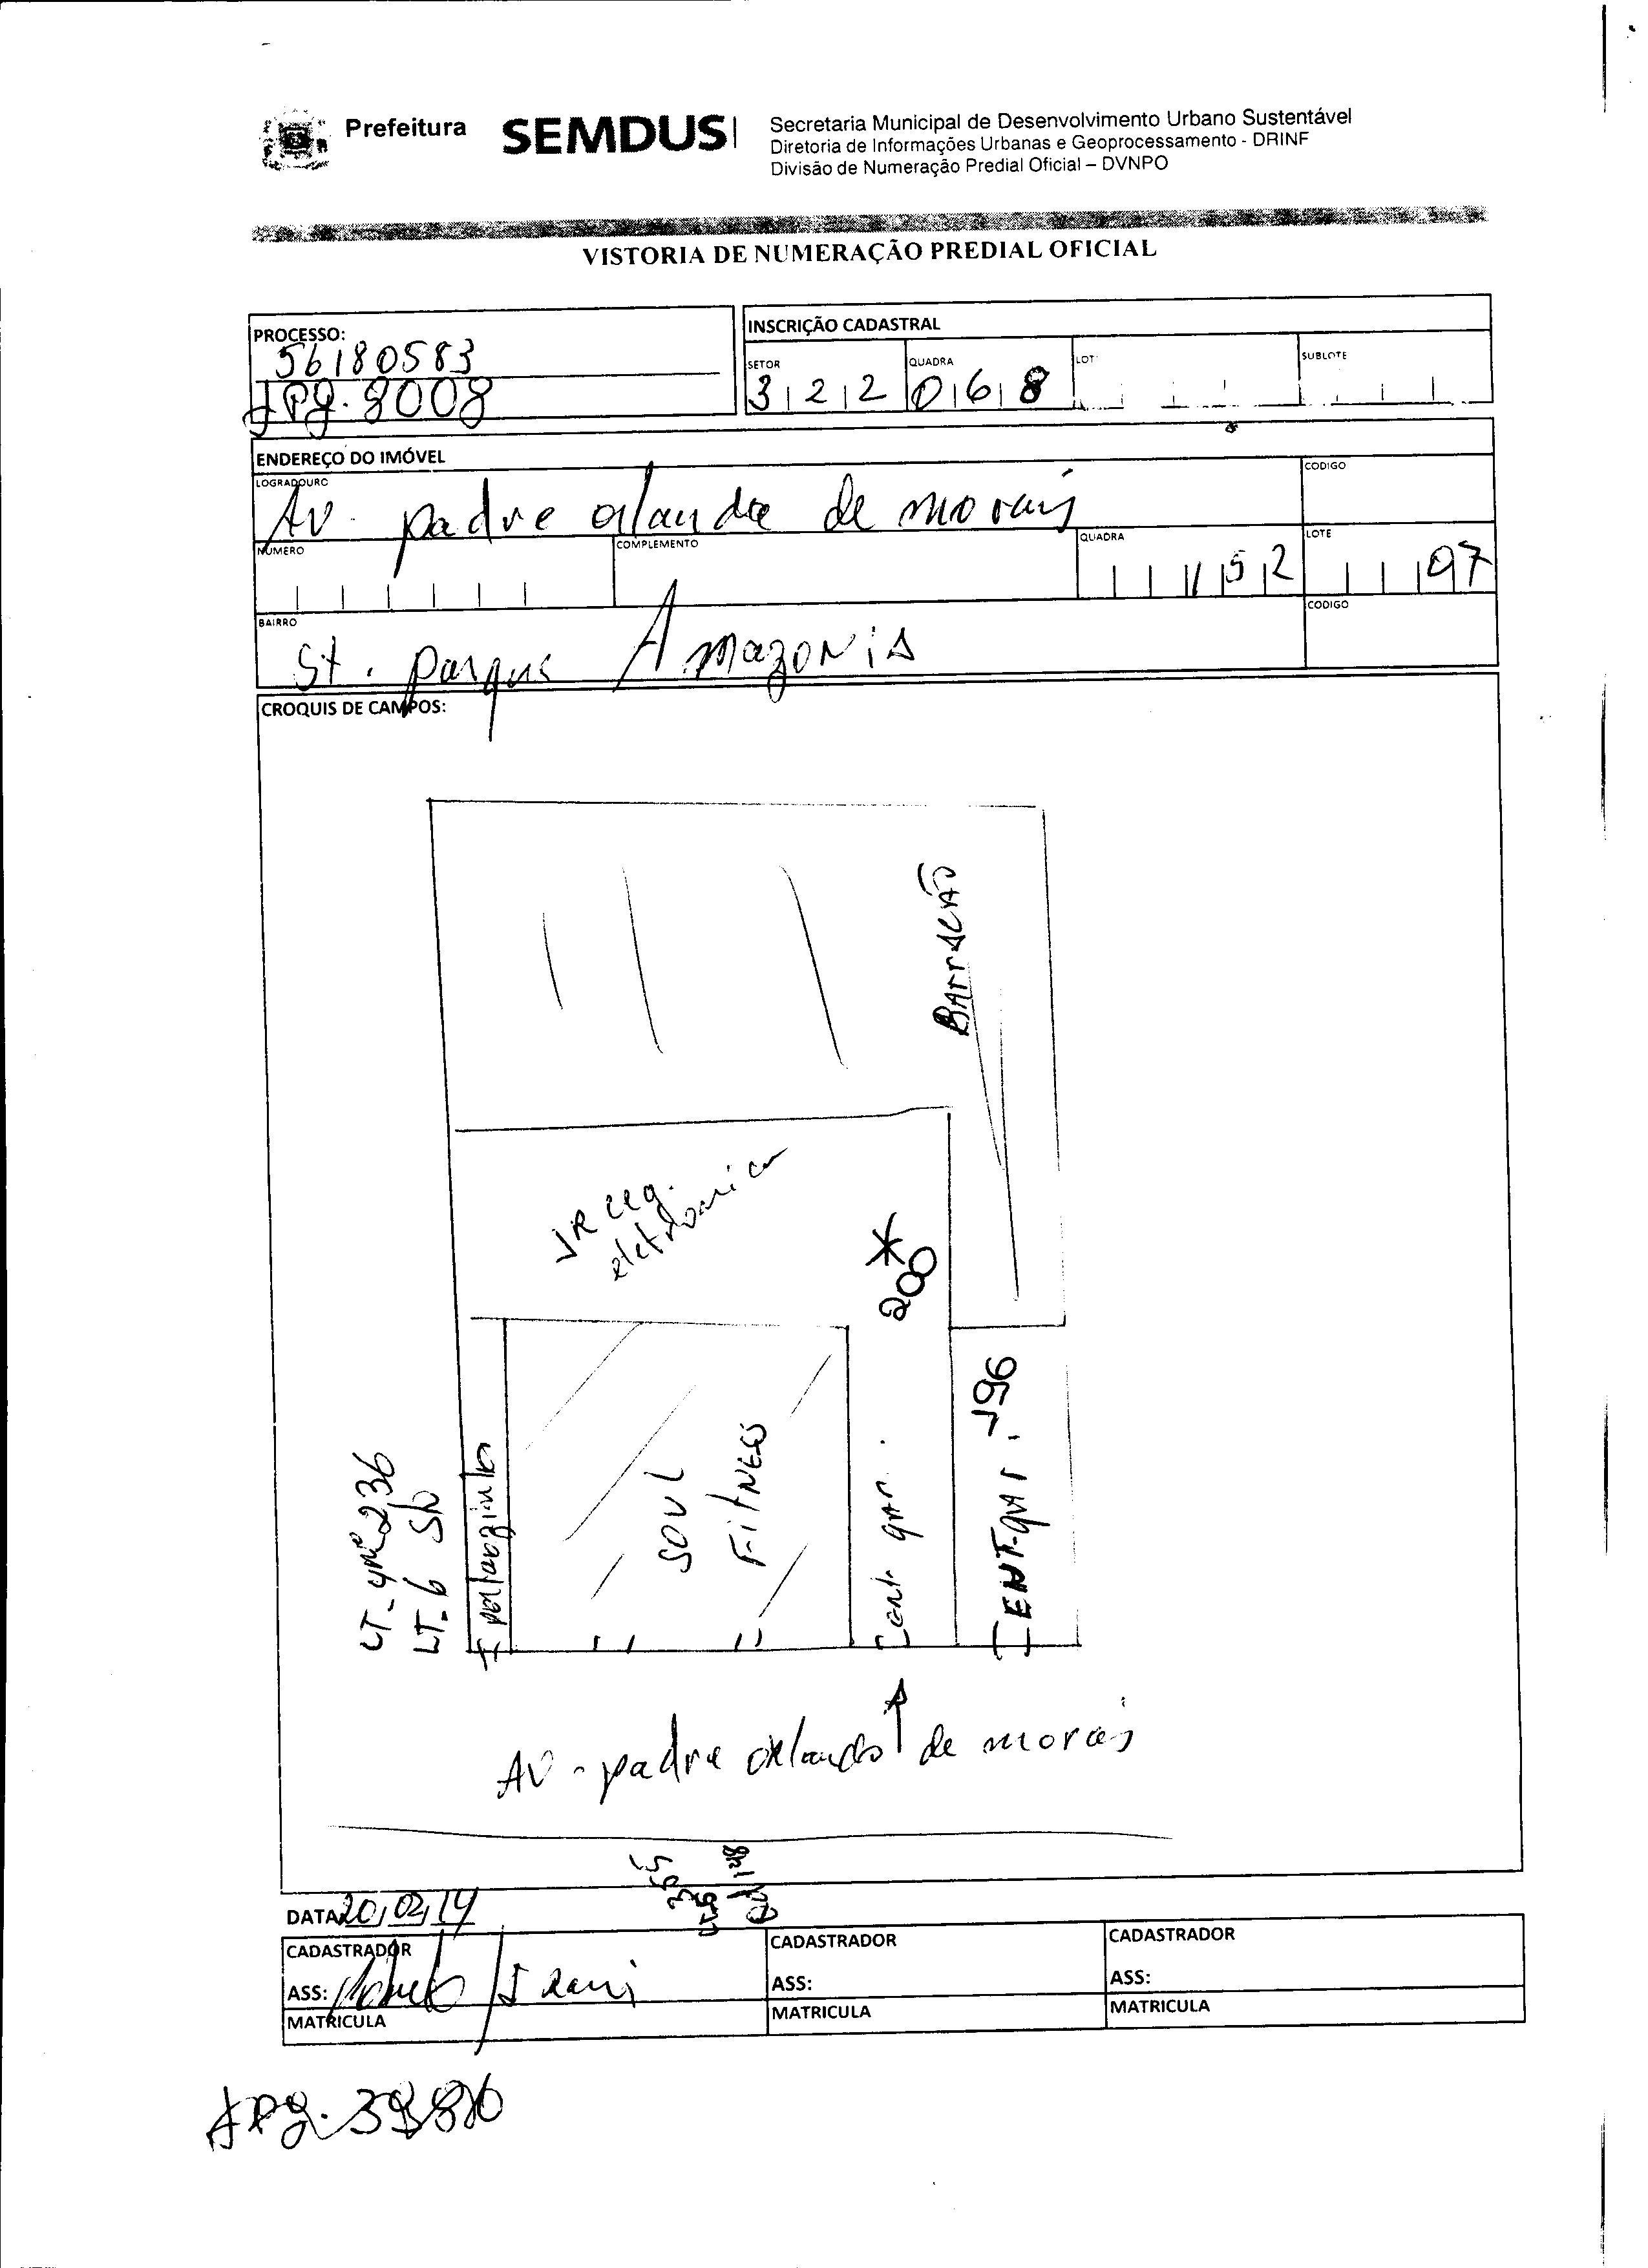 Prefeitura
SEMDUS
Secretaria Municipal de Desenvolvimento Urbano Sustentável
Diretoria de Informações Urbanas e Geoprocessamento - DRINF
Divisão de Numeração Predial Oficial – DVNPO
VISTORIA DE NUMERAÇÃO PREDIAL OFICIAL
PROCESSO:
56180583
Jpg. 8008
INSCRIÇÃO CADASTRAL
SETOR
322
QUADRA
068
LOT
SUBLOTE
ENDEREÇO DO IMÓVEL
LOGRADOURO
Av. padre orlando de morais
CODIGO
NÚMERO
COMPLEMENTO
QUADRA
152
LOTE
07
BAIRRO
St. parque Amazonia
CODIGO
CROQUIS DE CAMPOS:
BArrACÃO
JR seg.
eletronica
*
200
196
LT- 4 nº 236
LT- 6 S/n
portaozinho
SOUL
FitNess
ent. gar.
ENT. gar.
Av - padre orlando de morais
DATA 20/02/14
CADASTRADOR
ASS:
MATRICULA
CADASTRADOR
ASS:
MATRICULA
CADASTRADOR
ASS:
MATRICULA